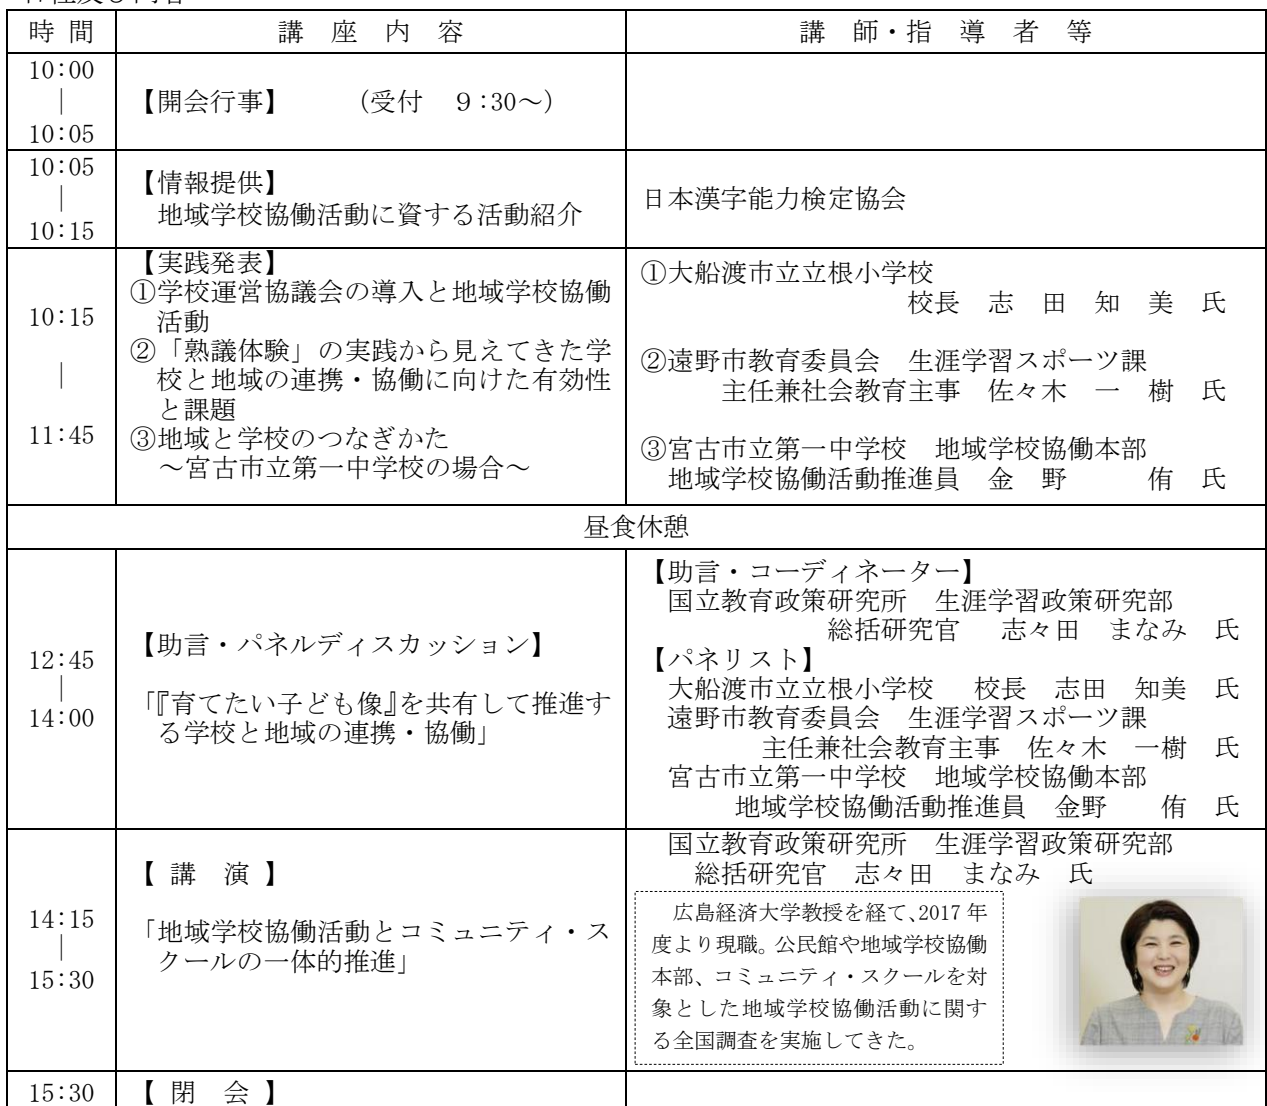 時 間　講 座 内 容　講 師・指 導 者 等
10:00
｜
10:05
【開会行事】　　（受付　９:30～）
10:05
｜
10:15
【情報提供】
地域学校協働活動に資する活動紹介
日本漢字能力検定協会
10:15
｜
11:45
【実践発表】
①学校運営協議会の導入と地域学校協働
活動
②「熟議体験」の実践から見えてきた学
校と地域の連携・協働に向けた有効性
と課題
③地域と学校のつなぎかた
～宮古市立第一中学校の場合～
①大船渡市立立根小学校
校長　志　田　知　美　氏
②遠野市教育委員会　生涯学習スポーツ課
主任兼社会教育主事　佐々木　一　樹　氏
③宮古市立第一中学校　地域学校協働本部
地域学校協働活動推進員　金　野　　　侑　氏
昼食休憩
12:45
｜
14:00
【助言・パネルディスカッション】
「『育てたい子ども像』を共有して推進す
る学校と地域の連携・協働」
【助言・コーディネーター】
国立教育政策研究所　生涯学習政策研究部
総括研究官　志々田　まなみ　氏
【パネリスト】
大船渡市立立根小学校　校長　志田　知美　氏
遠野市教育委員会　生涯学習スポーツ課
主任兼社会教育主事　佐々木　一樹　氏
宮古市立第一中学校　地域学校協働本部
地域学校協働活動推進員　金野　　侑　氏
14:15
｜
15:30
【 講　演 】
「地域学校協働活動とコミュニティ・ス
クールの一体的推進」
国立教育政策研究所　生涯学習政策研究部
総括研究官　志々田　まなみ　氏
広島経済大学教授を経て、2017 年
度より現職。公民館や地域学校協働
本部、コミュニティ・スクールを対
象とした地域学校協働活動に関す
る全国調査を実施してきた。
15:30
【 閉　会 】